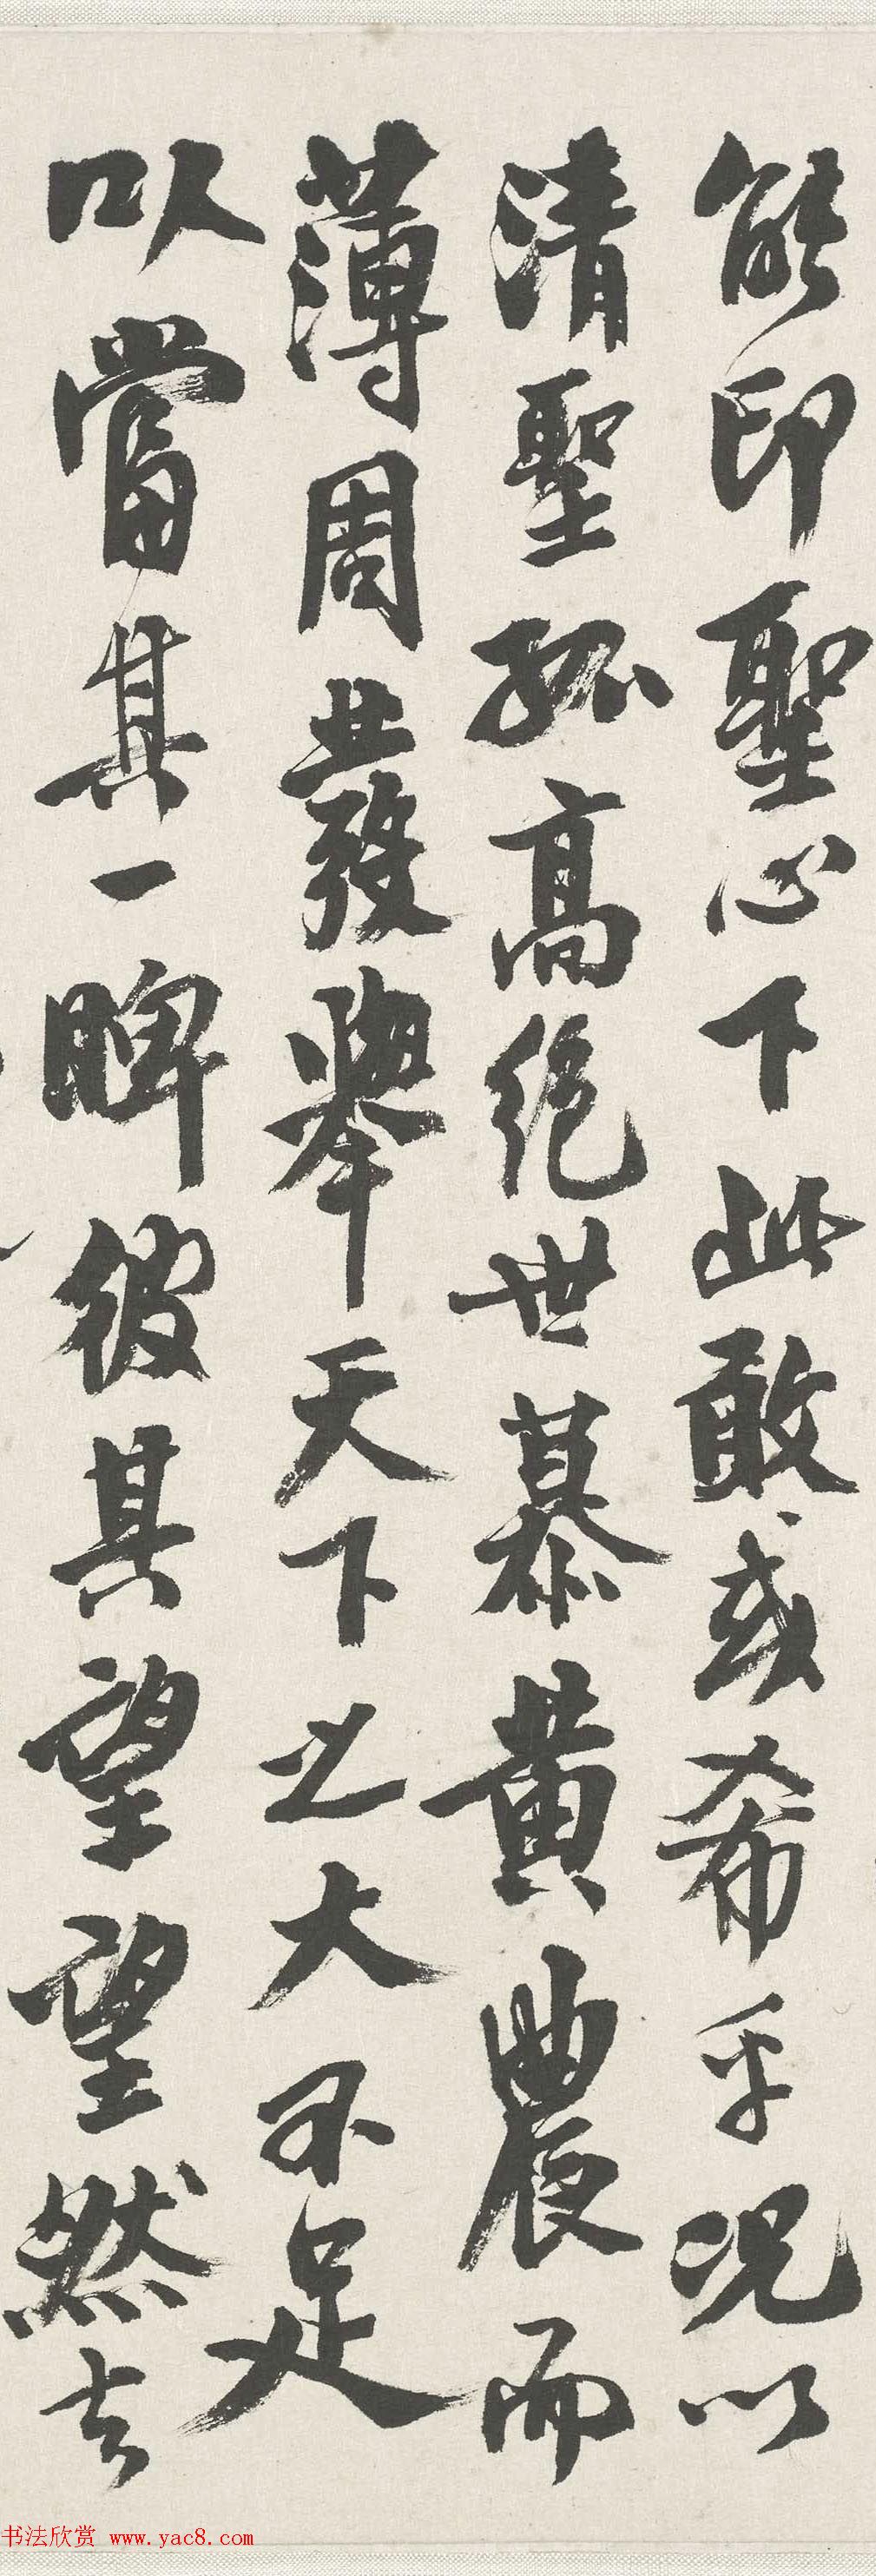 能印聖心下此敢或希乎況以
清聖孤高絕世慕黃農而
薄周發舉天下之大不足
以當其一睥彼其望望然去
书法欣赏 www.yac8.com